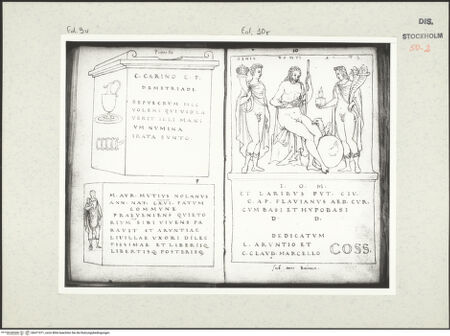 Fol. 9v
Fol. 10r
DIS.
STOCKHOLM
50-2
C. CARINO L. F.
DEMETRIADI
SEPVLCRVM HIC
VOLENS QVI VIOLA
VERIT ILLI MANI
VM NVMINA
IRATA SVNTO.
M. AVR. MVTIVS NOLANVS
COMMVNE
PRAEVENIENS QVIETO
RIVM SIBI VIVENS PA
RAVIT ET ARVNTIAE
LIVILLAE VXORI DILEC
TISSIMAE ET LIBERISQ.
LIBERTISQ. POSTERISQ.
10
GENIO
I. O. M.
ET LARIBVS PVT. CIV.
C. AP. FLAVIANVS AED. CVR.
CVM BASI ET HYPOBASI
D. D.
DEDICATVM
L. ARVNTIO ET
C. CLAVD. MARCELLO
COSS.